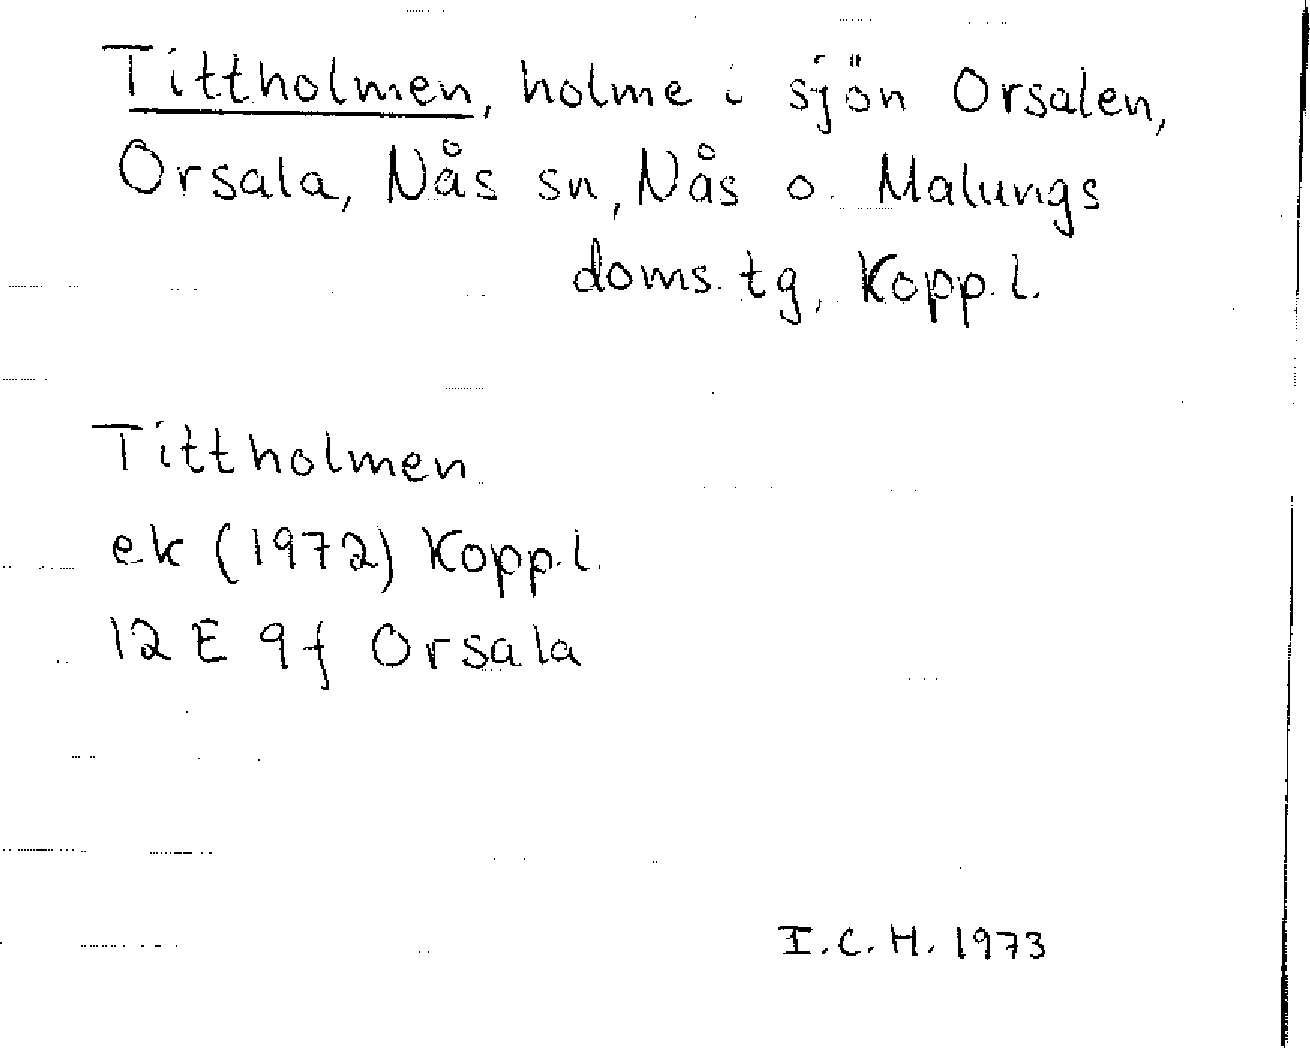 Tittholmen, holme i sjön Orsalen,
Orsala, Nås sn, Nås o. Malungs
doms.tg, Kopp.l.
Tittholmen
ek (1972) Kopp.l.
12 E 9f Orsala
I.C.H. 1973